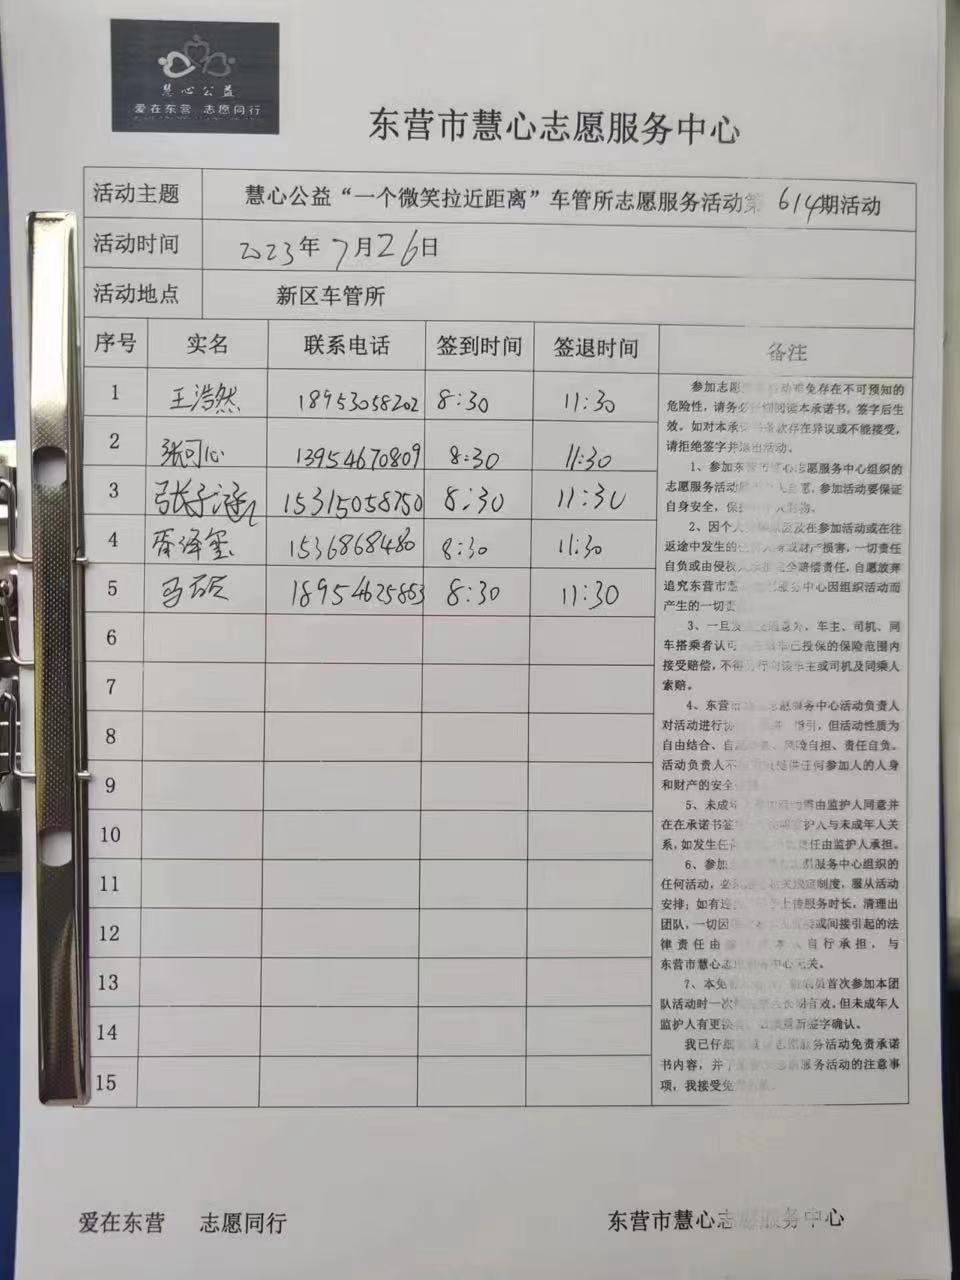 慧心公益
爱在东营 志愿同行
东营市慧心志愿服务中心
活动主题 慧心公益“一个微笑拉近距离”车管所志愿服务活动第614期活动
活动时间 2023年7月26日
活动地点 新区车管所
序号 实名 联系电话 签到时间 签退时间 备注
1 王浩然 18953058202 8:30 11:30
2 张可心 13954670809 8:30 11:30
3 张子涵 15315058750 8:30 11:30
4 泽玺 15368684 8:30 11:30
5 马硕 18954625853 8:30 11:30
6
7
8
9
10
11
12
13
14
15
参加志愿 动难免存在不可预知的
危险性，请务必仔细阅读本承诺书，签字后生
效。如对本承诺 条款存在异议或不能接受，
请拒绝签字并退出活动。
1、参加东营市慧心志愿服务中心组织的
志愿服务活动 自愿，参加活动要保证
自身安全，保 物。
2、因个人 及在参加活动或在往
返途中发生的 或财产损害，一切责任
自负或由侵权 赔偿责任，自愿放弃
追究东营市慧 服务中心因组织活动而
产生的一切责
3、一旦发 意外，车主、司机、同
车搭乘者认可 已投保的保险范围内
接受赔偿，不得 向该车主或司机及同乘人
索赔。
4、东营 志愿服务中心活动负责人
对活动进行 引，但活动性质为
自由结合、自 风险自担、责任自负。
活动负责人不 提供任何参加人的人身
和财产的安全
5、未成年 需由监护人同意并
在在承诺书签 监护人与未成年人关
系，如发生任 责任由监护人承担。
6、参加 志愿服务中心组织的
任何活动，必 规定制度，服从活动
安排；如有违 上传服务时长，清理出
团队，一切因 或间接引起的法
律责任由 本人自行承担，与
东营市慧心志愿服务中心无关。
7、本免 员首次参加本团
队活动时一次 长期有效。但未成年人
监护人有更换 重新签字确认。
我已仔细 志愿服务活动免责承诺
书内容，并了 服务活动的注意事
项，我接受免
爱在东营 志愿同行 东营市慧心志愿服务中心